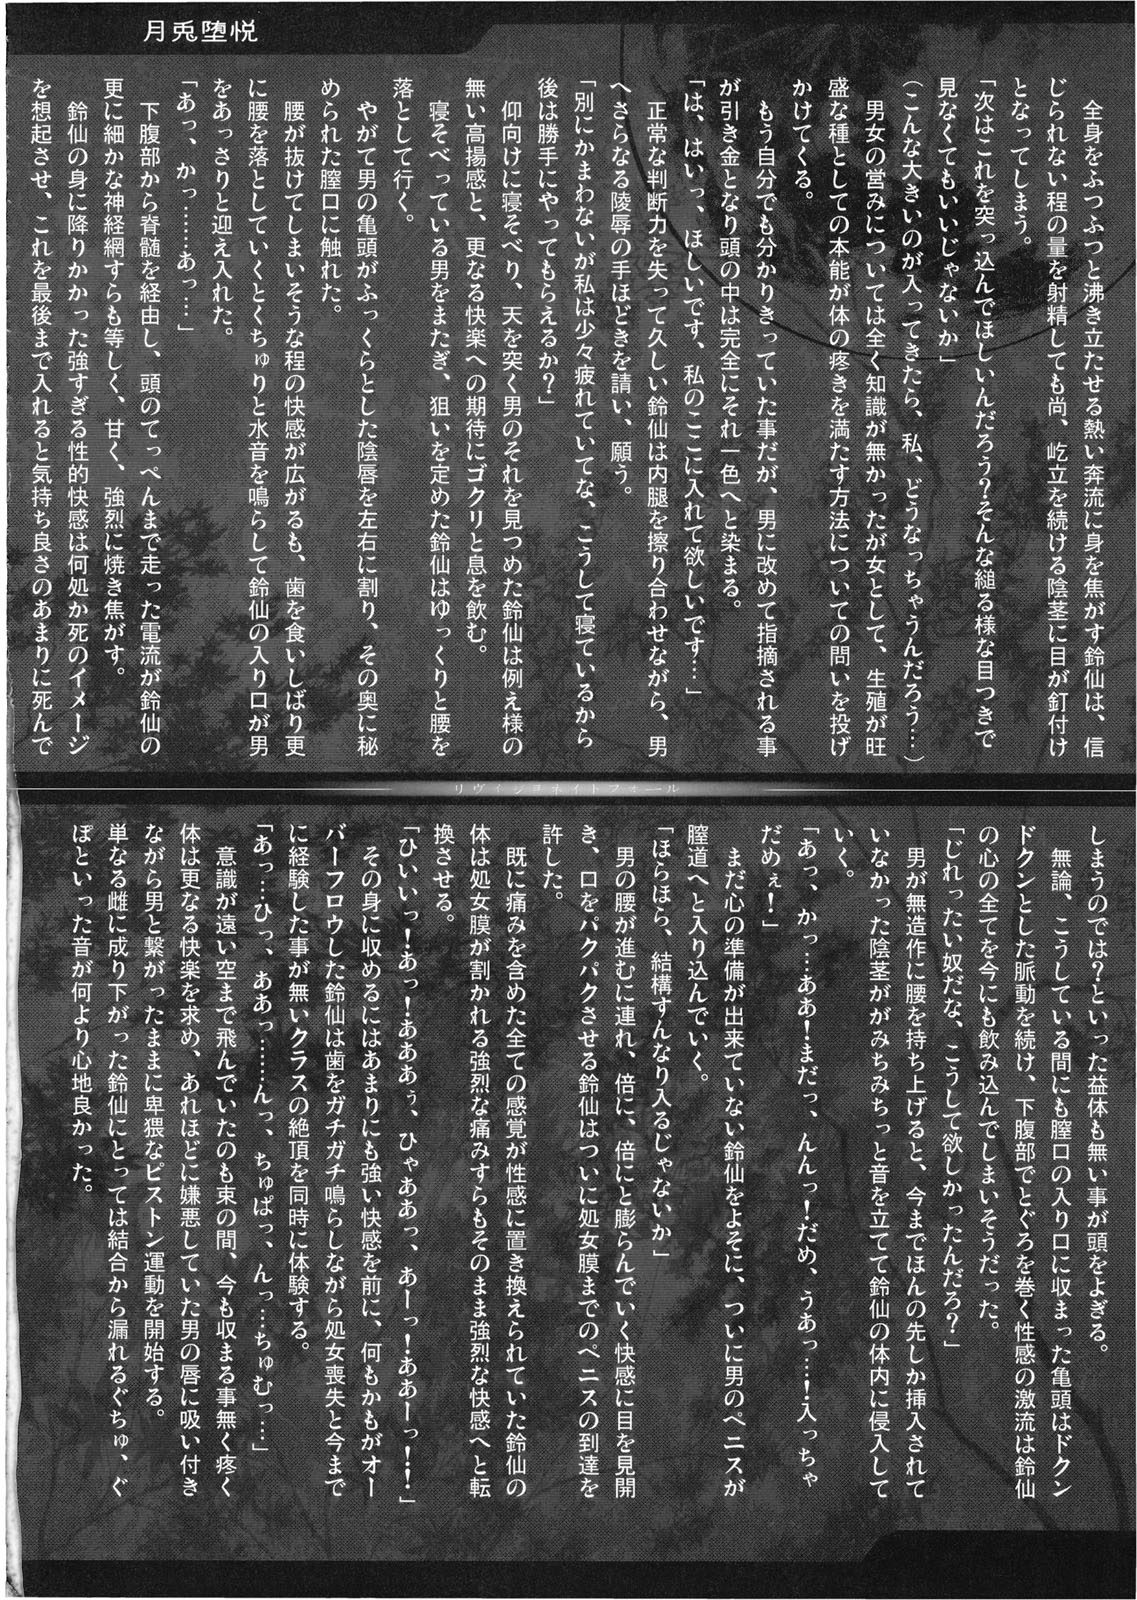 月兎堕悦
全身をふつふつと沸き立たせる熱い奔流に身を焦がす鈴仙は、信
じられない程の量を射精しても尚、屹立を続ける陰茎に目が釘付け
となってしまう。
「次はこれを突っ込んでほしいんだろう?そんな縋る様な目つきで
見なくてもいいじゃないか」
(こんな大きいのが入ってきたら、私、どうなっちゃうんだろう…)
男女の営みについては全く知識が無かったが女として、生殖が旺
盛な種としての本能が体の疼きを満たす方法についての問いを投げ
かけてくる。
もう自分でも分かりきっていた事だが、男に改めて指摘される事
が引き金となり頭の中は完全にそれ一色へと染まる。
「は、はいっ、ほしいです、私のここに入れて欲しいです…」
正常な判断力を失って久しい鈴仙は内腿を擦り合わせながら、男
へさらなる陵辱の手ほどきを請い、願う。
「別にかまわないが私は少々疲れていてな、こうして寝ているから
後は勝手にやってもらえるか?」
仰向けに寝そべり、天を突く男のそれを見つめた鈴仙は例え様の
無い高揚感と、更なる快楽への期待にゴクリと息を飲む。
寝そべっている男をまたぎ、狙いを定めた鈴仙はゆっくりと腰を
落として行く。
やがて男の亀頭がふっくらとした陰唇を左右に割り、その奥に秘
められた膣口に触れた。
腰が抜けてしまいそうな程の快感が広がるも、歯を食いしばり更
に腰を落としていくとくちゅりと水音を鳴らして鈴仙の入り口が男
をあっさりと迎え入れた。
「あっ、かっ……あっ…」
下腹部から脊髄を経由し、頭のてっぺんまで走った電流が鈴仙の
更に細かな神経網すらも等しく、甘く、強烈に焼き焦がす。
鈴仙の身に降りかかった強すぎる性的快感は何処か死のイメージ
を想起させ、これを最後まで入れると気持ち良さのあまりに死んで
リヴィジョネイトフォール
しまうのでは?といった益体も無い事が頭をよぎる。
無論、こうしている間にも膣口の入り口に収まった亀頭はドクン
ドクンとした脈動を続け、下腹部でとぐろを巻く性感の激流は鈴仙
の心の全てを今にも飲み込んでしまいそうだった。
「じれったい奴だな、こうして欲しかったんだろ?」
男が無造作に腰を持ち上げると、今までほんの先しか挿入されて
いなかった陰茎ががみちみちっと音を立てて鈴仙の体内に侵入して
いく。
「あっ、かっ…ああ!まだっ、んんっ!だめ、うあっ…!入っちゃ
だめぇ!」
まだ心の準備が出来ていない鈴仙をよそに、ついに男のペニスが
膣道へと入り込んでいく。
「ほらほら、結構すんなり入るじゃないか」
男の腰が進むに連れ、倍に、倍にと膨らんでいく快感に目を見開
き、口をパクパクさせる鈴仙はついに処女膜までのペニスの到達を
許した。
既に痛みを含めた全ての感覚が性感に置き換えられていた鈴仙の
体は処女膜が割かれる強烈な痛みすらもそのまま強烈な快感へと転
換させる。
「ひいいっ!あっ!あああぅ、ひゃああっ、あーっ!ああーっ!!」
その身に収めるにはあまりにも強い快感を前に、何もかもがオー
バーフロウした鈴仙は歯をガチガチ鳴らしながら処女喪失と今まで
に経験した事が無いクラスの絶頂を同時に体験する。
「あっ…ひっ、ああっ……んっ、ちゅぱっ、んっ…ちゅむっ…」
意識が遠い空まで飛んでいたのも束の間、今も収まる事無く疼く
体は更なる快楽を求め、あれほどに嫌悪していた男の唇に吸い付き
ながら男と繋がったままに卑猥なピストン運動を開始する。
単なる雌に成り下がった鈴仙にとっては結合から漏れるぐちゅ、ぐ
ぽといった音が何より心地良かった。